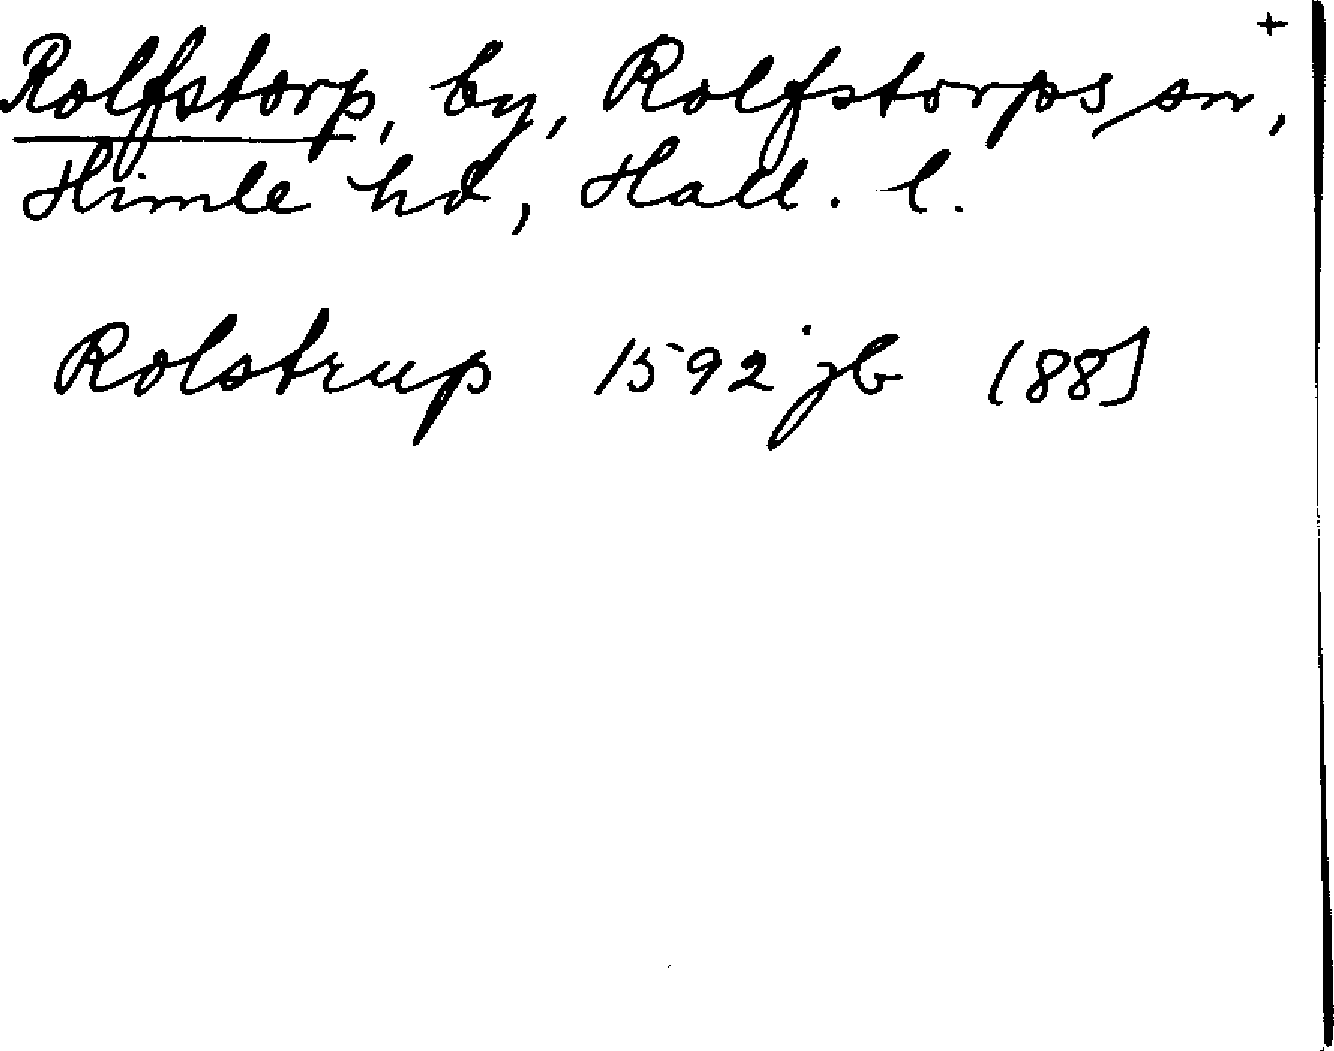 +
Rolfstorp, by, Rolfstorps sn,
Himle hd, Hall. l.
Rolstrup 1592 jb (88]